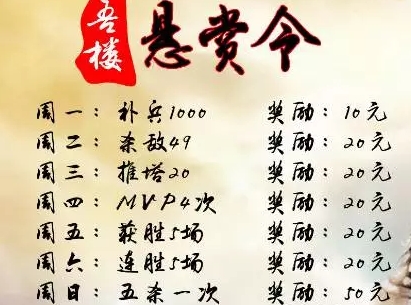 吾楼
悬赏令
周一：补兵1000 奖励：10元
周二：杀敌49 奖励：20元
周三：推塔20 奖励：20元
周四：MVP4次 奖励：20元
周五：获胜5场 奖励：20元
周六：连胜5场 奖励：20元
周日：五杀一次 奖励：50元